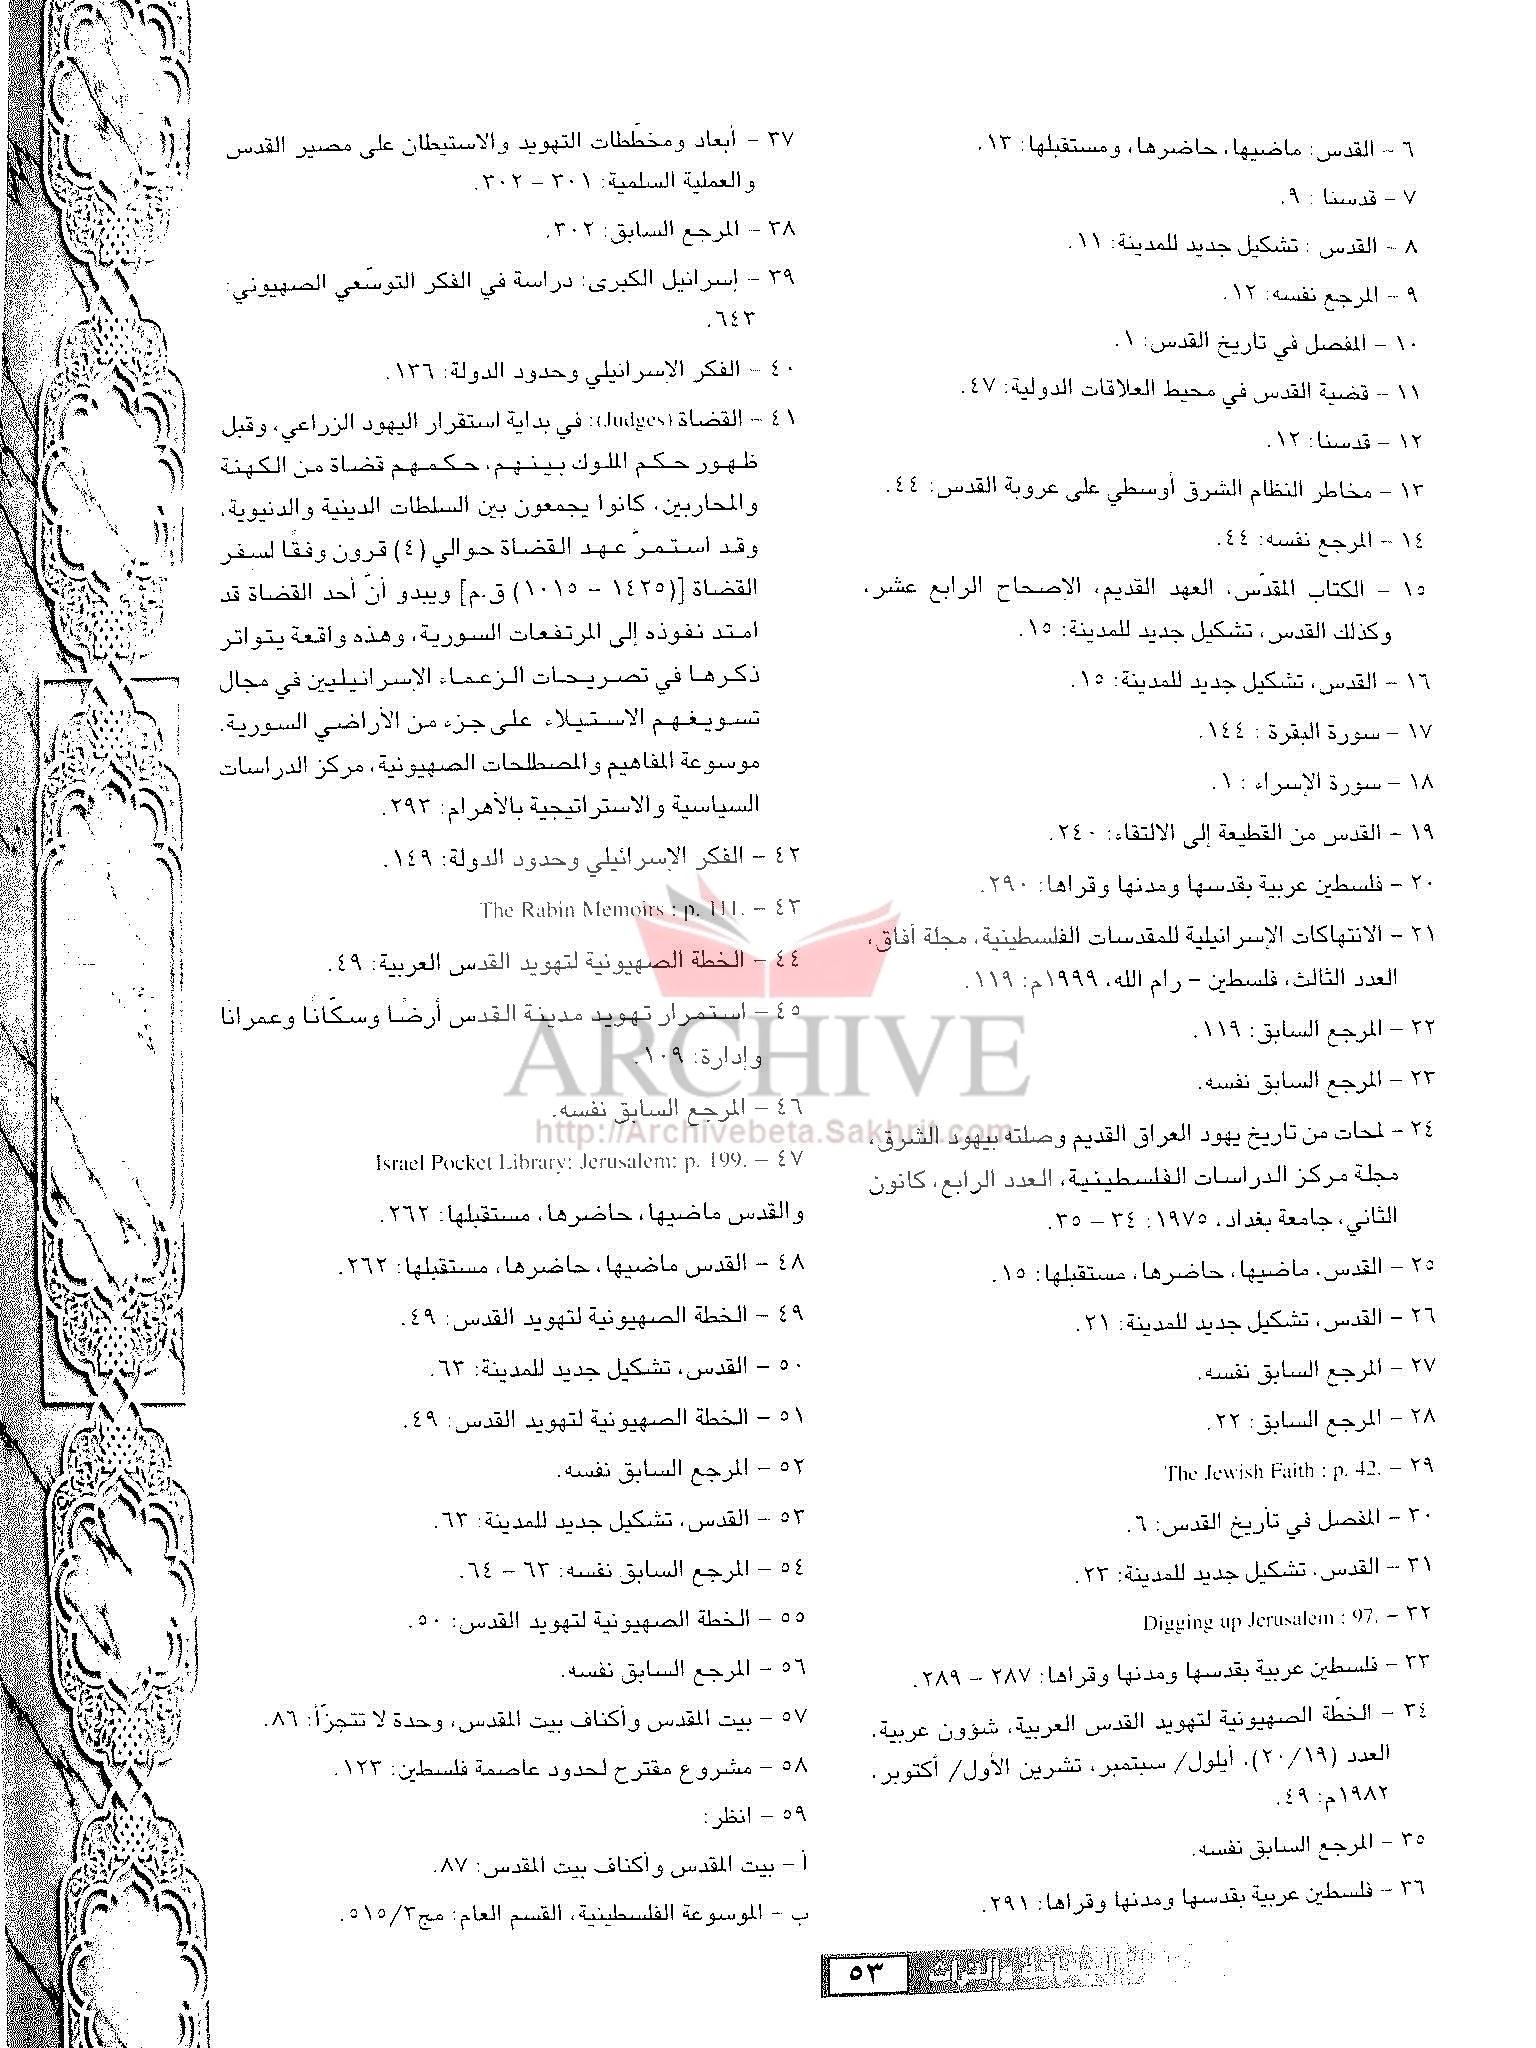 ٦ – القدس: ماضيها، حاضرها، ومستقبلها: ١٣.
٧ – قدسنا : ٩.
٨ – القدس : تشكيل جديد للمدينة: ١١.
٩ – المرجع نفسه: ١٢.
١٠ – المفصل في تاريخ القدس: ١.
١١ – قضية القدس في محيط العلاقات الدولية: ٤٧.
١٢ – قدسنا: ١٢.
١٣ – مخاطر النظام الشرق أوسطي على عروبة القدس: ٤٤.
١٤ – المرجع نفسه: ٤٤.
١٥ – الكتاب المقدّس، العهد القديم، الإصحاح الرابع عشر،
وكذلك القدس، تشكيل جديد للمدينة: ١٥.
١٦ – القدس، تشكيل جديد للمدينة: ١٥.
١٧ – سورة البقرة : ١٤٤.
١٨ – سورة الإسراء : ١.
١٩ – القدس من القطيعة إلى الالتقاء: ٢٤٠.
٢٠ – فلسطين عربية بقدسها ومدنها وقراها: ٢٩٠.
٢١ – الانتهاكات الإسرائيلية للمقدسات الفلسطينية، مجلة آفاق،
العدد الثالث، فلسطين – رام الله، ١٩٩٩م: ١١٩.
٢٢ – المرجع السابق: ١١٩.
٢٣ – المرجع السابق نفسه.
٢٤ – لمحات من تاريخ يهود العراق القديم وصلته بيهود الشرق،
مجلة مركز الدراسات الفلسطينية، العدد الرابع، كانون
الثاني، جامعة بغداد، ١٩٧٥: ٣٤ – ٣٥.
٢٥ – القدس، ماضيها، حاضرها، مستقبلها: ١٥.
٢٦ – القدس، تشكيل جديد للمدينة: ٢١.
٢٧ – المرجع السابق نفسه.
٢٨ – المرجع السابق: ٢٢.
٢٩ – The Jewish Faith : p. 42.
٣٠ – المفصل في تأريخ القدس: ٦.
٣١ – القدس، تشكيل جديد للمدينة: ٢٣.
٣٢ – Digging up Jerusalem : 97.
٣٣ – فلسطين عربية بقدسها ومدنها وقراها: ٢٨٧ – ٢٨٩.
٣٤ – الخطّة الصهيونية لتهويد القدس العربية، شؤون عربية،
العدد (٢٠/١٩)، أيلول/ سبتمبر، تشرين الأول/ أكتوبر،
١٩٨٢م: ٤٩.
٣٥ – المرجع السابق نفسه.
٣٦ – فلسطين عربية بقدسها ومدنها وقراها: ٢٩١.
٣٧ – أبعاد ومخطّطات التهويد والاستيطان على مصير القدس
والعملية السلمية: ٣٠١ – ٣٠٢.
٣٨ – المرجع السابق: ٣٠٢.
٣٩ – إسرائيل الكبرى: دراسة في الفكر التوسّعي الصهيوني:
٦٤٣.
٤٠ – الفكر الإسرائيلي وحدود الدولة: ١٣٦.
٤١ – القضاة (Judges): في بداية استقرار اليهود الزراعي، وقبل
ظهور حكم الملوك بينهم، حكمهم قضاة من الكهنة
والمحاربين، كانوا يجمعون بين السلطات الدينية والدنيوية،
وقد استمرّ عهد القضاة حوالي (٤) قرون وفقًا لسفر
القضاة [(١٤٢٥ – ١٠١٥) ق.م] ويبدو أنّ أحد القضاة قد
امتد نفوذه إلى المرتفعات السورية، وهذه واقعة يتواتر
ذكرها في تصريحات الزعماء الإسرائيليين في مجال
تسويغهم الاستيلاء على جزء من الأراضي السورية.
موسوعة المفاهيم والمصطلحات الصهيونية، مركز الدراسات
السياسية والاستراتيجية بالأهرام: ٢٩٣.
٤٢ – الفكر الإسرائيلي وحدود الدولة: ١٤٩.
٤٣ – The Rabin Memoirs : p. 111.
٤٤ – الخطة الصهيونية لتهويد القدس العربية: ٤٩.
٤٥ – استمرار تهويد مدينة القدس أرضًا وسكّانًا وعمرانًا
وإدارة: ١٠٩.
٤٦ – المرجع السابق نفسه.
٤٧ – Israel Pocket Library: Jerusalem: p. 199.
والقدس ماضيها، حاضرها، مستقبلها: ٢٦٢.
٤٨ – القدس ماضيها، حاضرها، مستقبلها: ٢٦٢.
٤٩ – الخطة الصهيونية لتهويد القدس: ٤٩.
٥٠ – القدس، تشكيل جديد للمدينة: ٦٣.
٥١ – الخطة الصهيونية لتهويد القدس: ٤٩.
٥٢ – المرجع السابق نفسه.
٥٣ – القدس، تشكيل جديد للمدينة: ٦٣.
٥٤ – المرجع السابق نفسه: ٦٣ – ٦٤.
٥٥ – الخطة الصهيونية لتهويد القدس: ٥٠.
٥٦ – المرجع السابق نفسه.
٥٧ – بيت المقدس وأكناف بيت المقدس، وحدة لا تتجزّأ: ٨٦.
٥٨ – مشروع مقترح لحدود عاصمة فلسطين: ١٢٣.
٥٩ – انظر:
أ – بيت المقدس وأكناف بيت المقدس: ٨٧.
ب – الموسوعة الفلسطينية، القسم العام: مج٥١٥/٣.
ARCHIVE
http://Archivebeta.Sakhrit.com
والتراث ٥٣